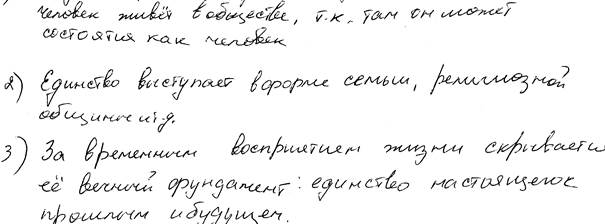 человек живёт в обществе, т.к. там он может
состоятся как человек
2) Единство выступает в форме семьи, религиозной
общины и т.д.
3) За временным восприятием жизни скрывается
её вечный фундамент: единство настоящего с
прошлым и будущем.